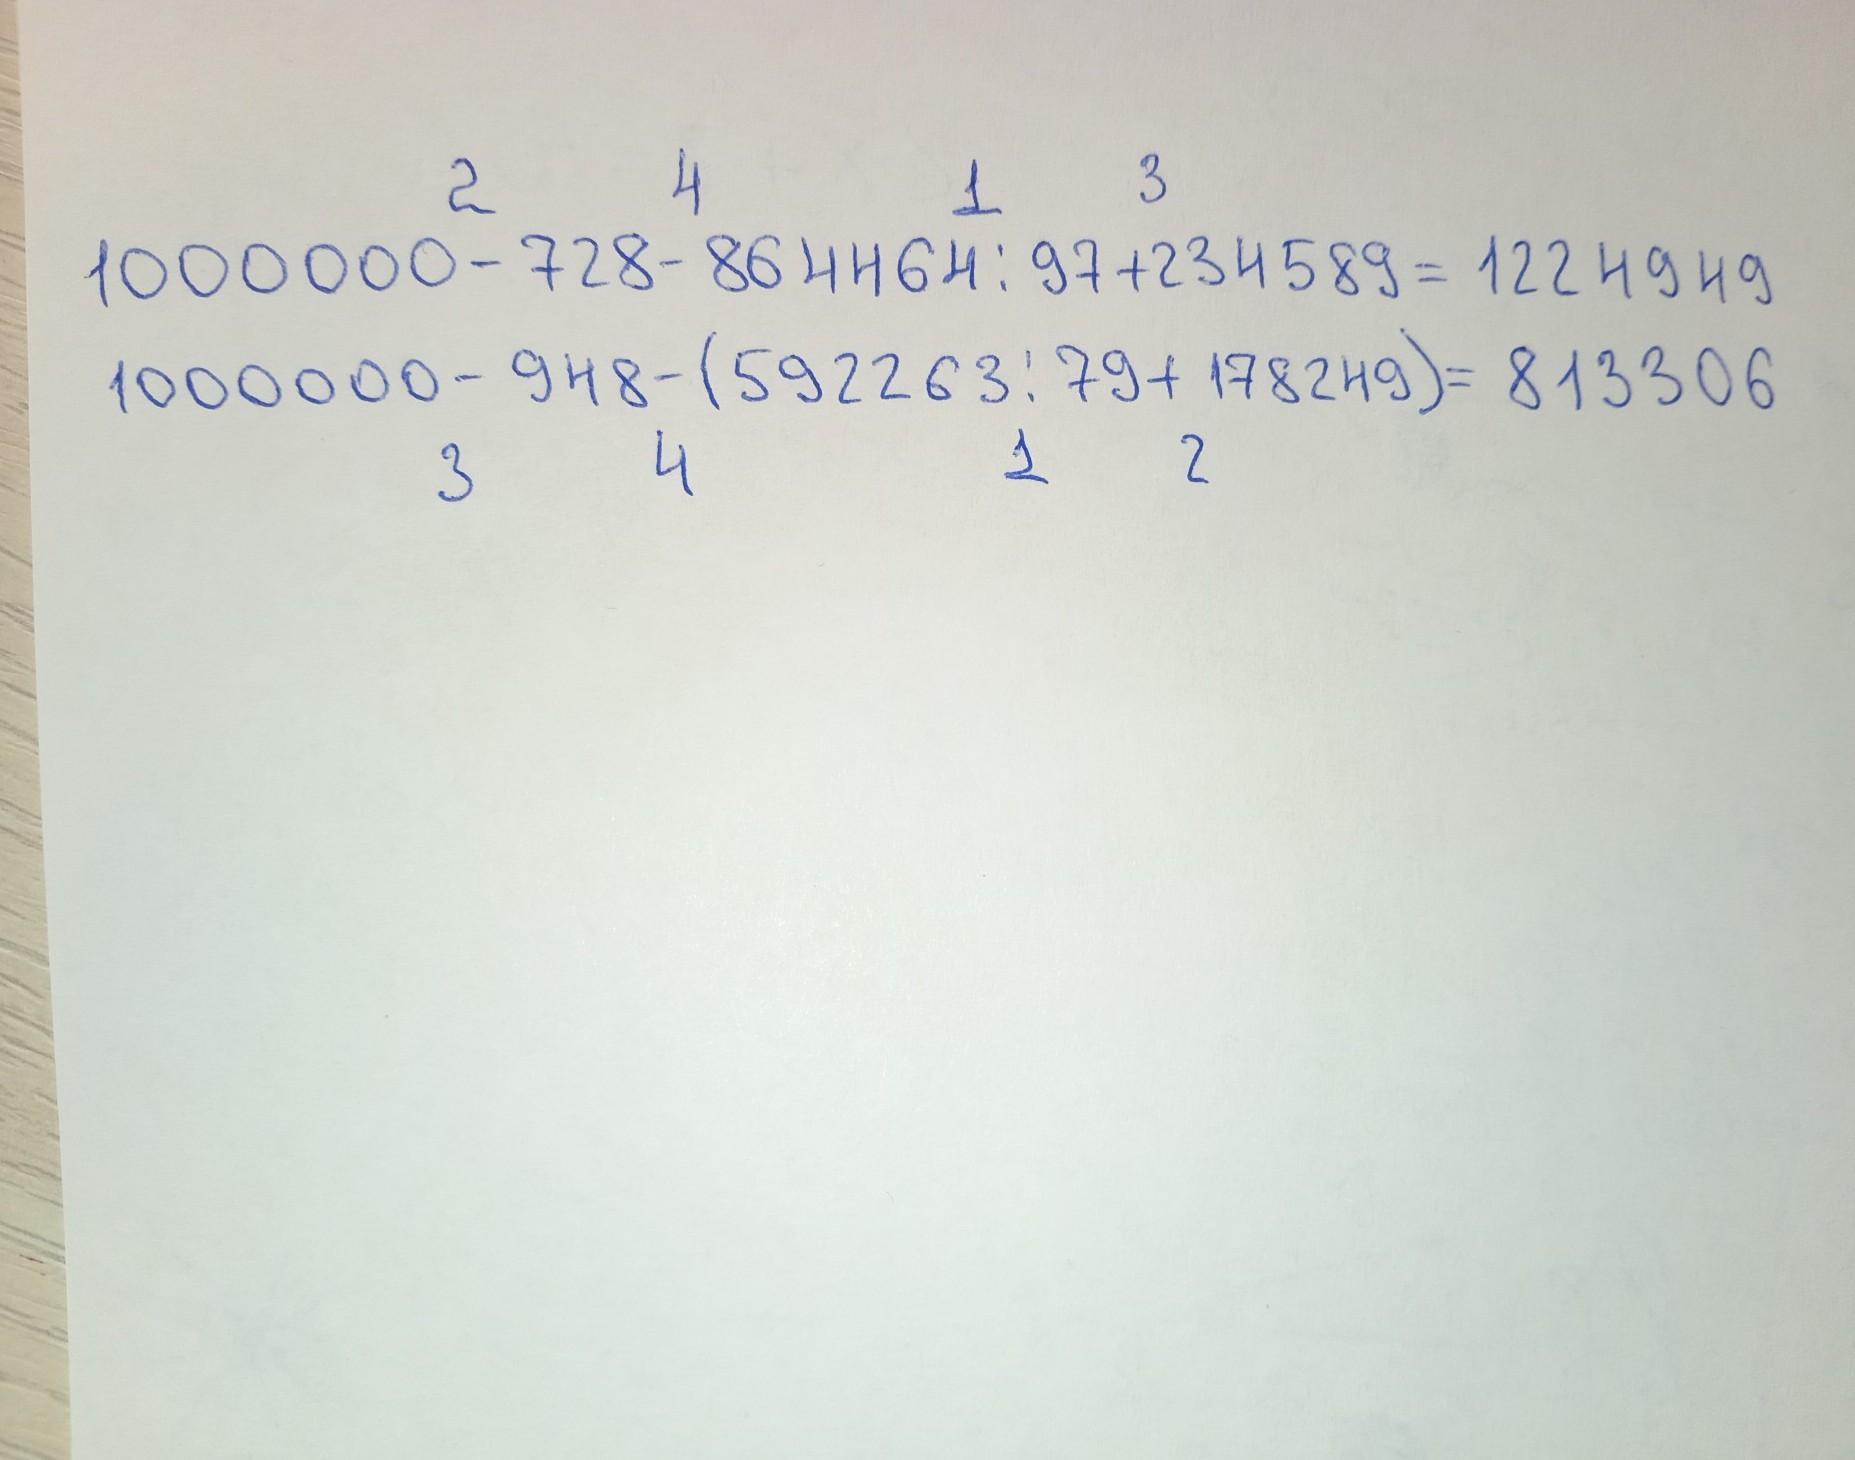 2 4 1 3
1000000-728-864464:97+234589=1224949
1000000-948-(592263:79+178249)=813306
3 4 1 2